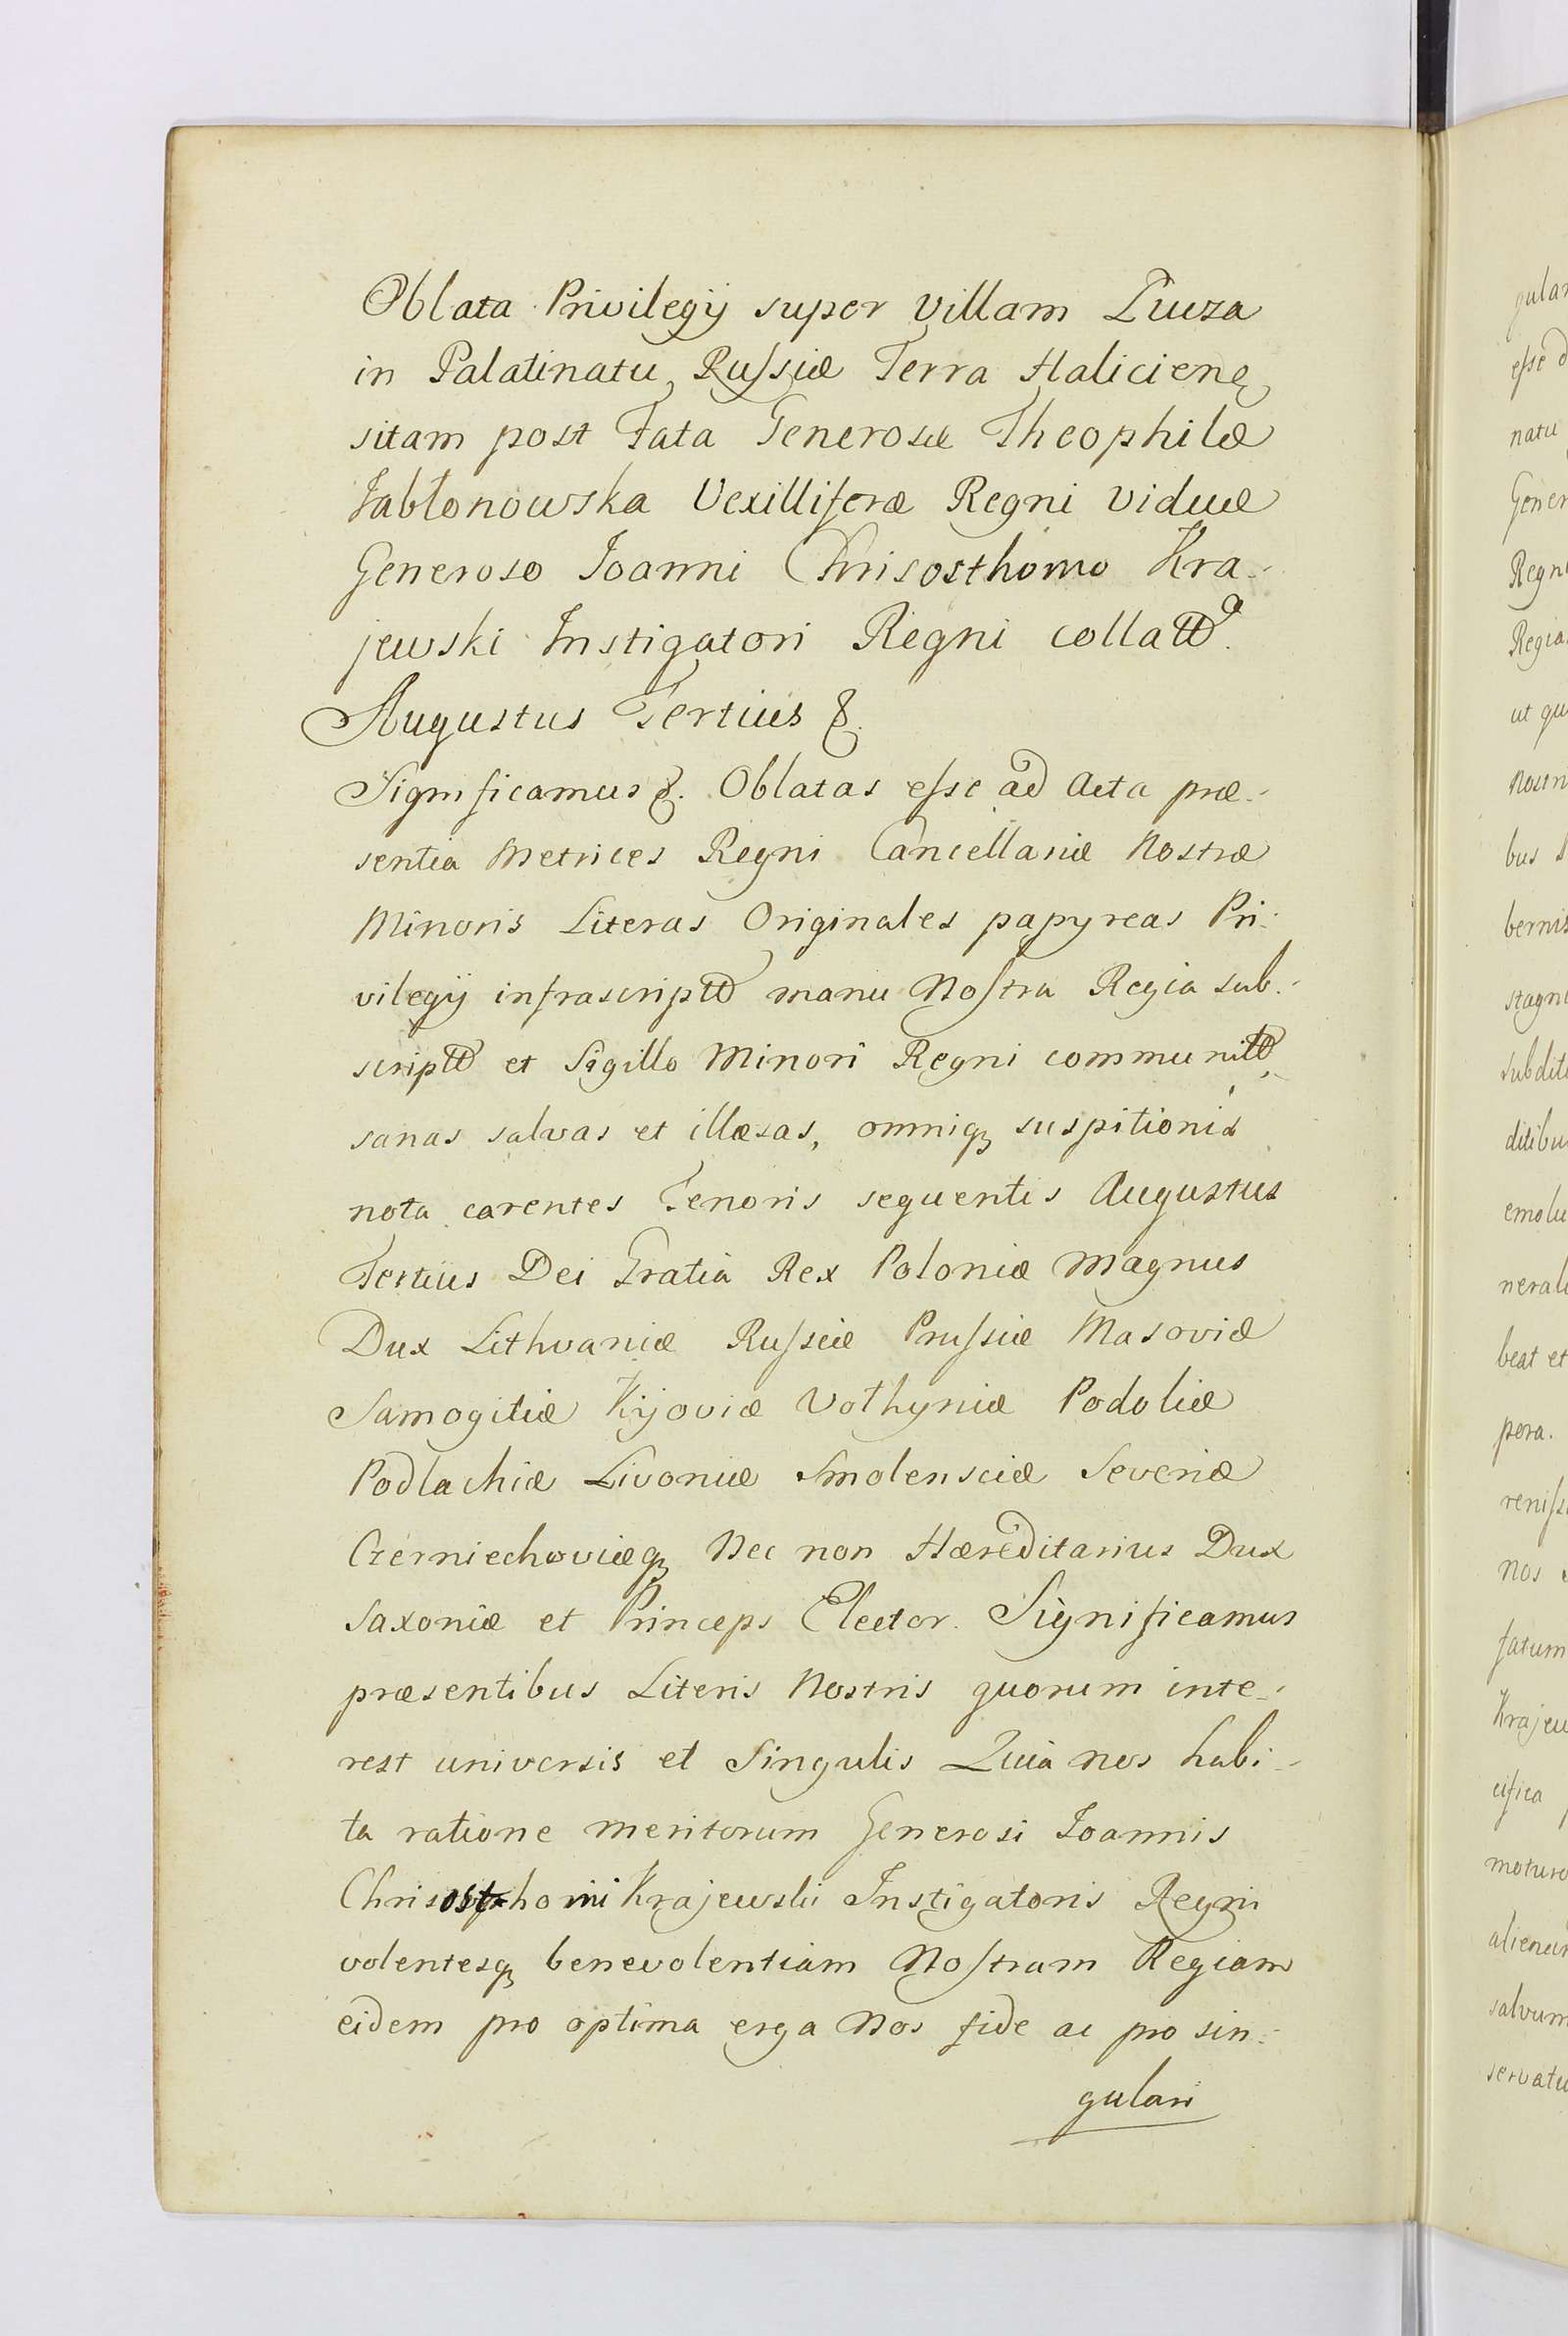 Oblata Privilegij super villam Łuuza
in Palatinatu Russiæ Terra Halicien̄
sitam post Fata Generosæ Theophilæ
Jabłonowska Vexilliferæ Regni viduæ
Generoso Joanni Chrisosthomo Kra-
jewski Instigatori Regni collatt.
Augustus Tertius &.
Significamus &. Oblatas esse ad Acta præ-
sentia Metrices Regni Cancellariæ Nostræ
Minoris Literas Originales papyreas Pri-
vilegij infrascriptt manu Nostra Regia sub-
scriptt et Sigillo Minori Regni communitt,
sanas salvas et illæsas, omniq; suspitionis
nota carentes Tenoris sequentis Augustus
Tertius Dei Gratia Rex Poloniæ Magnus
Dux Lithvaniæ Russiæ Prussiæ Masoviæ
Samogitiæ Kijoviæ Vołhyniæ Podoliæ
Podlachiæ Livoniæ Smolensciæ Severiæ
Czerniechoviæq; Nec non Hæreditarius Dux
Saxoniæ et Princeps Elector. Significamus
præsentibus Literis Nostris quorum inte-
rest universis et Singulis Quia nos habi-
ta ratione meritorum Generosi Joannis
Chrisosthomi Krajewski Instigatoris Regni
volentesq; benevolentiam Nostram Regiam
eidem pro optima erga Nos fide ac pro sin-
gulari